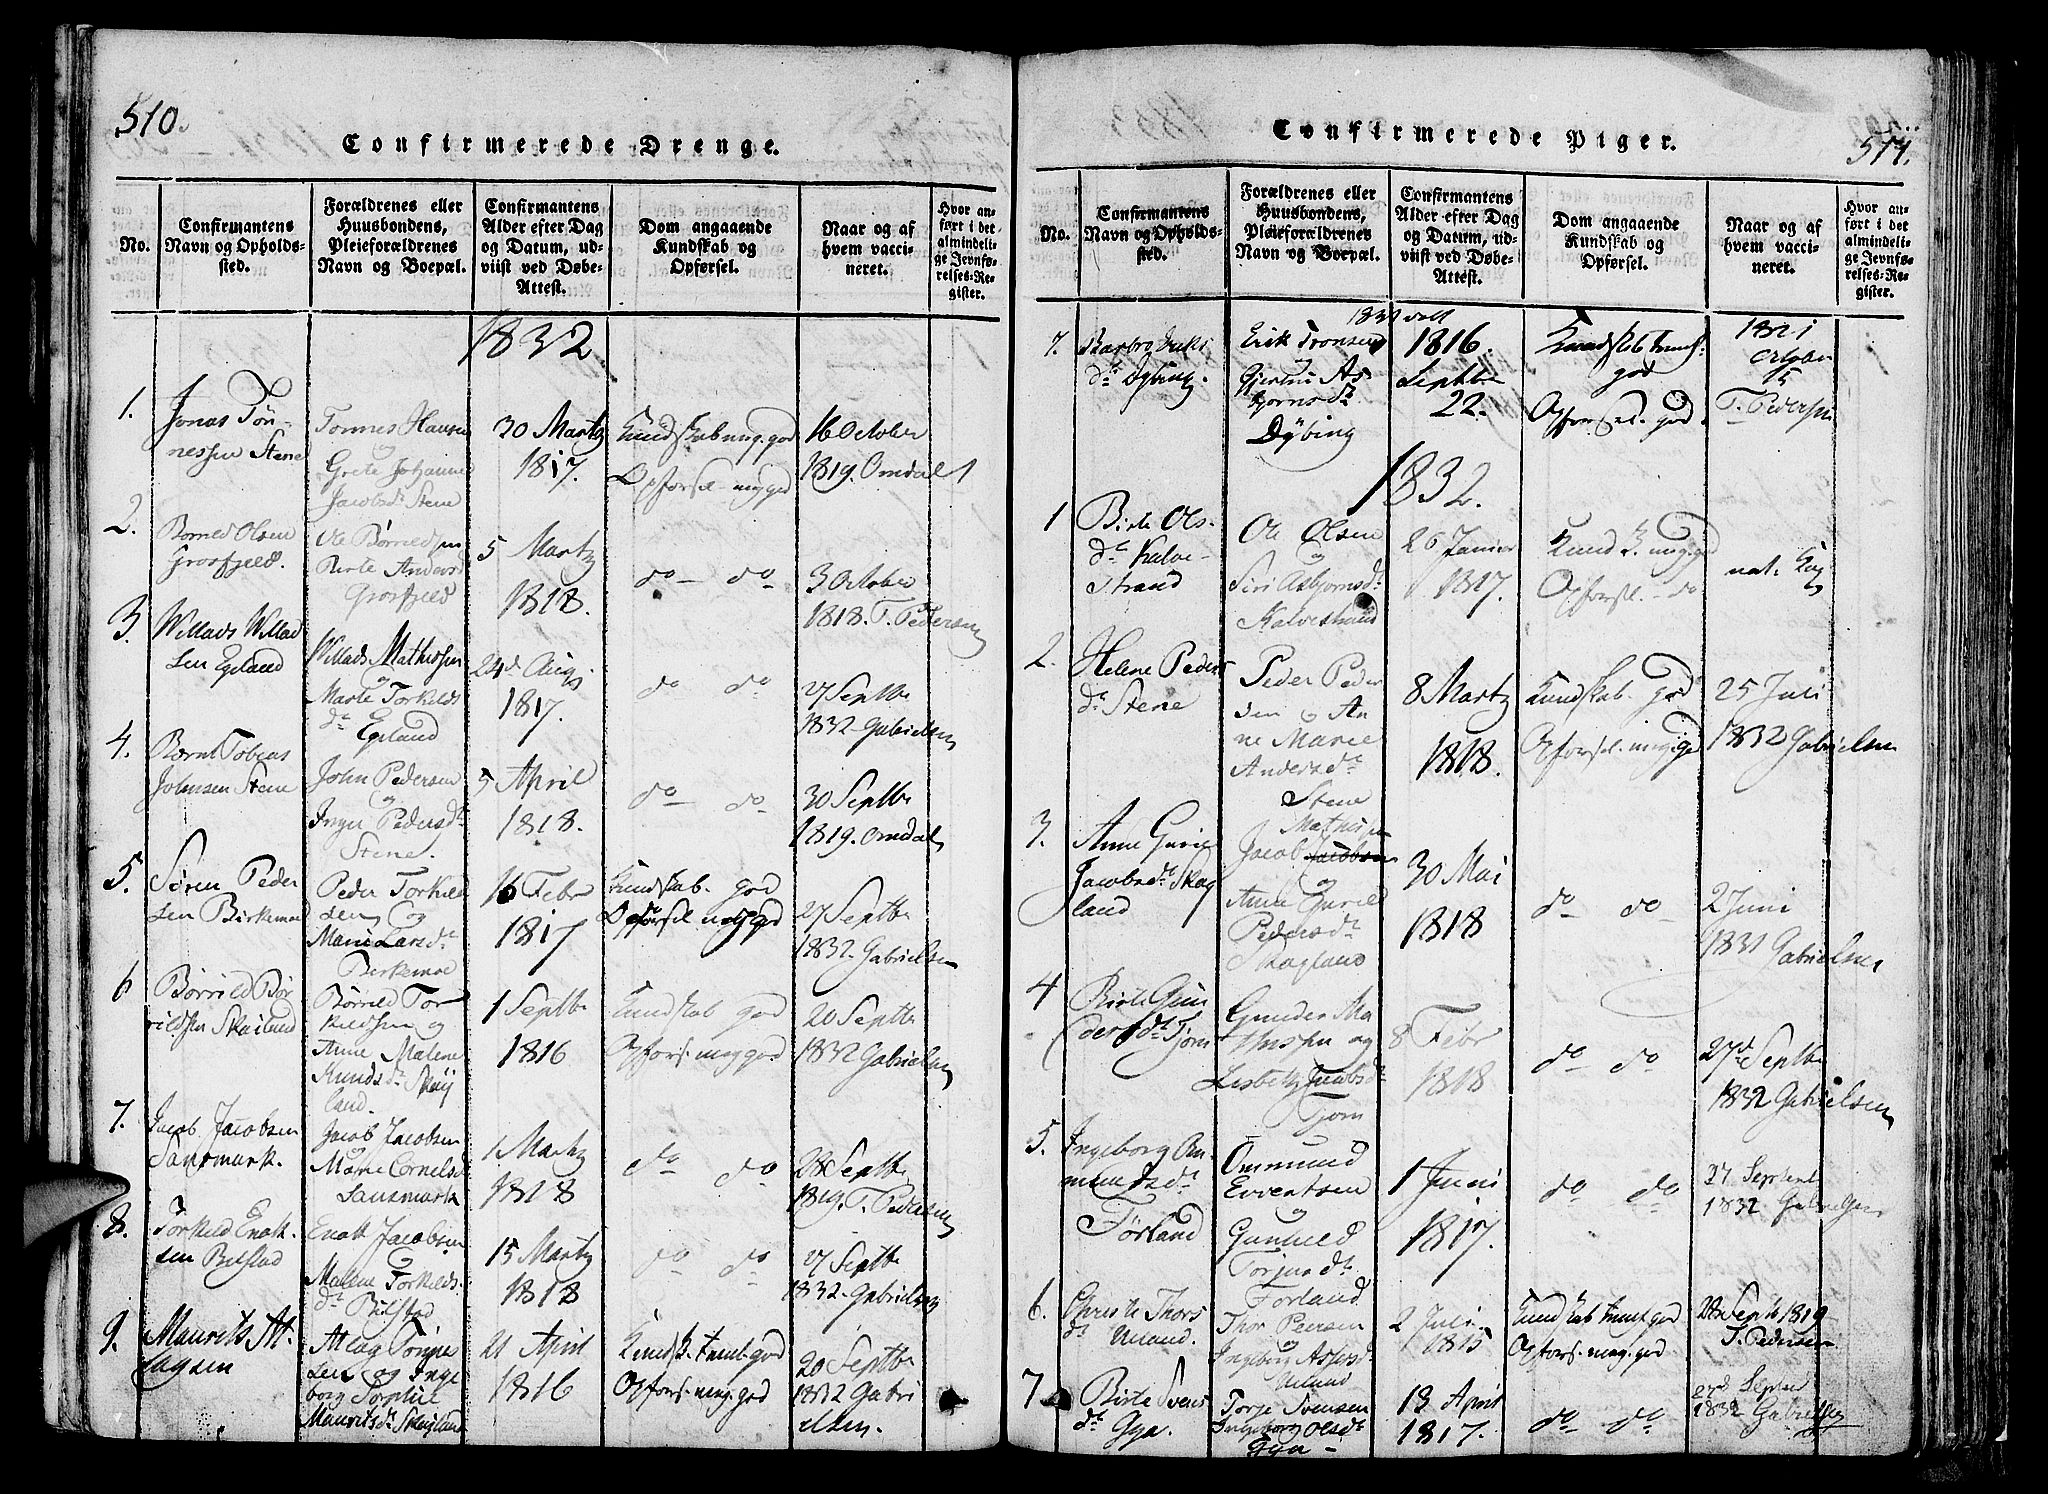 510.
Confirmerede Drenge.
No.
Confirmantens
Navn og Opholds-
sted.
Forældrenes eller
Huusbondens,
Pleieforældrenes
Navn og Boepæl.
Confirmantens
Alder efter Dag
og Datum, ud-
viist ved Døbe-
Attest.
Dom angaaende
Kundskab og
Opførsel.
Naar og af
hvem vacci-
neret.
Hvor an-
ført i det
almindeli-
ge Jevnfø-
relses-Re-
gister.
1832
1.
Jonas Tøn-
nessen Stene
Tønnes Hansen
Grete Johanne
Jacobsdr Stene
30 Martz
1817.
Kundskab meg. god
Opførsel meg god
16 October
1819. Omdal
2.
Børrild Olsen
Grosfjeld.
Ole Børrildsen
Birte Anders
Grosfjeld
5 Martz
1818.
do do
3 October
1818. T. Pedersen
3.
Willads Willad
sen Egeland
Willads Mathissen
og
Marte Torkelds
dr Egeland
24d Aug.
1817.
do do
27 Septbr
1832 Gabrielsen
4.
Bernt Tobias
Johnsen Stene
John Pedersen
og
Inger Pedersdr
Stene.
5 April
1818.
do do
30 Septbr
1819. Omdal
5.
Søren Peder
sen Birkemoe
Peder Torkild
sen og
Marie Larsdr
Birkemoe
16 Febr
1817
Kundskab. god
Opførsel meg god
27 Septbr
1832. Gabrielsen
6
Børrild Bør
rildsen Skailand
Børrild Tor
kildsen og
Anne Malene
Knudsdr Skaij
land.
1 Septbr
1816
Kundskab god
Opførs. meg god
20 Septbr
1832 Gabrielsen
7.
Jacob Jacobsen
Sandsmark.
Jacob Jacobsen
og
Marie Cornelsd
Sandsmark
1 Martz
1818
do do
28 Septbr
1819. T. Pedersen
8.
Torkild Enok-
sen Bilstad
Enok Jacobsen
og
Malene Torkelds-
dr Bilstad
15 Martz
1818
do do
27 Septbr
1832. Gabrielsen
9.
Maurits At-
lagsen
Atlag Tønne
sen og Inge
borg Sophie
Mauritsdr Skaigland
21 April
1816
Kundsk. teml. god
Opførs. meg. god
20 Septbr
1832 Gabri
elsen.
Confirmerede Piger.
511.
No.
Confirmantens
Navn og Opholds-
sted.
Forældrenes eller
Huusbondens,
Pleieforældrenes
Navn og Boepæl.
Confirmantens
Alder efter Dag
og Datum, ud-
viist ved Døbe-
Attest.
Dom angaaende
Kundskab og
Opførsel.
Naar og af
hvem vacci-
neret.
Hvor an-
ført i det
almindeli-
ge Jevnfø-
relses-Re-
gister.
7.
Barbro Eriks
dr Dybing.
Erik Tronsen
og
Gjertru As
bjørnsdr
Dybing
1816.
Septbr
22.
Kundskab teml.
god
Opførsel. god.
1821
October
15
T. Pedersen
1832.
1
Birte Ols-
dr Kalve-
strand
Ole Olsen
og
Siri Asbjørnsdr
Kalvestrand
26 Januar
1817.
Kundsk. meg. god
Opførsel - do
nat. Kop
2.
Helene Peders
dr Stene
Peder Peder
sen og An
ne Marie
Andersdr
Stene
8 Martz
1818.
Kundskab. god
Opførsel meg. god
25 Juli
1832 Gabrielsen
3.
Anne Gurie
Jacobsdr Skog
land
Mathissen
Jacob Jacobsen
og
Anne Gurild
Pedersdr
Skogland
30 Mai
1818
do do
2 Juni
1831 Gabrielsen
4
Birte Gun
dersdr Tjørn
Gunder Ma
thissen og
Lisbeth Jacobsdr
Tjørn
8 Febr
1818
do do
27d Septbr
1832 Gabrielsen
5.
Ingeborg Om
mundsdr
Førland
Ommund
Evertsen
og
Gunild
Torjusdr
Førland
1 Juni
1817.
do do
27 Septem
1832 Gabrielsen
6.
Christi Thors
dr Ueland.
Thor Peersen
og
Ingeborg Aslersd
Ueland
2 Juli
1815
Kundskab teml. god
Opførs. meg. god
28 Septb 1819
T. Pedersen
7
Birte Svens
dr Gya.
Torje Svensen
Ingeborg Olsdr
Gya -
18 April
1817.
do do
27d Septem
1832 Gabrielsen